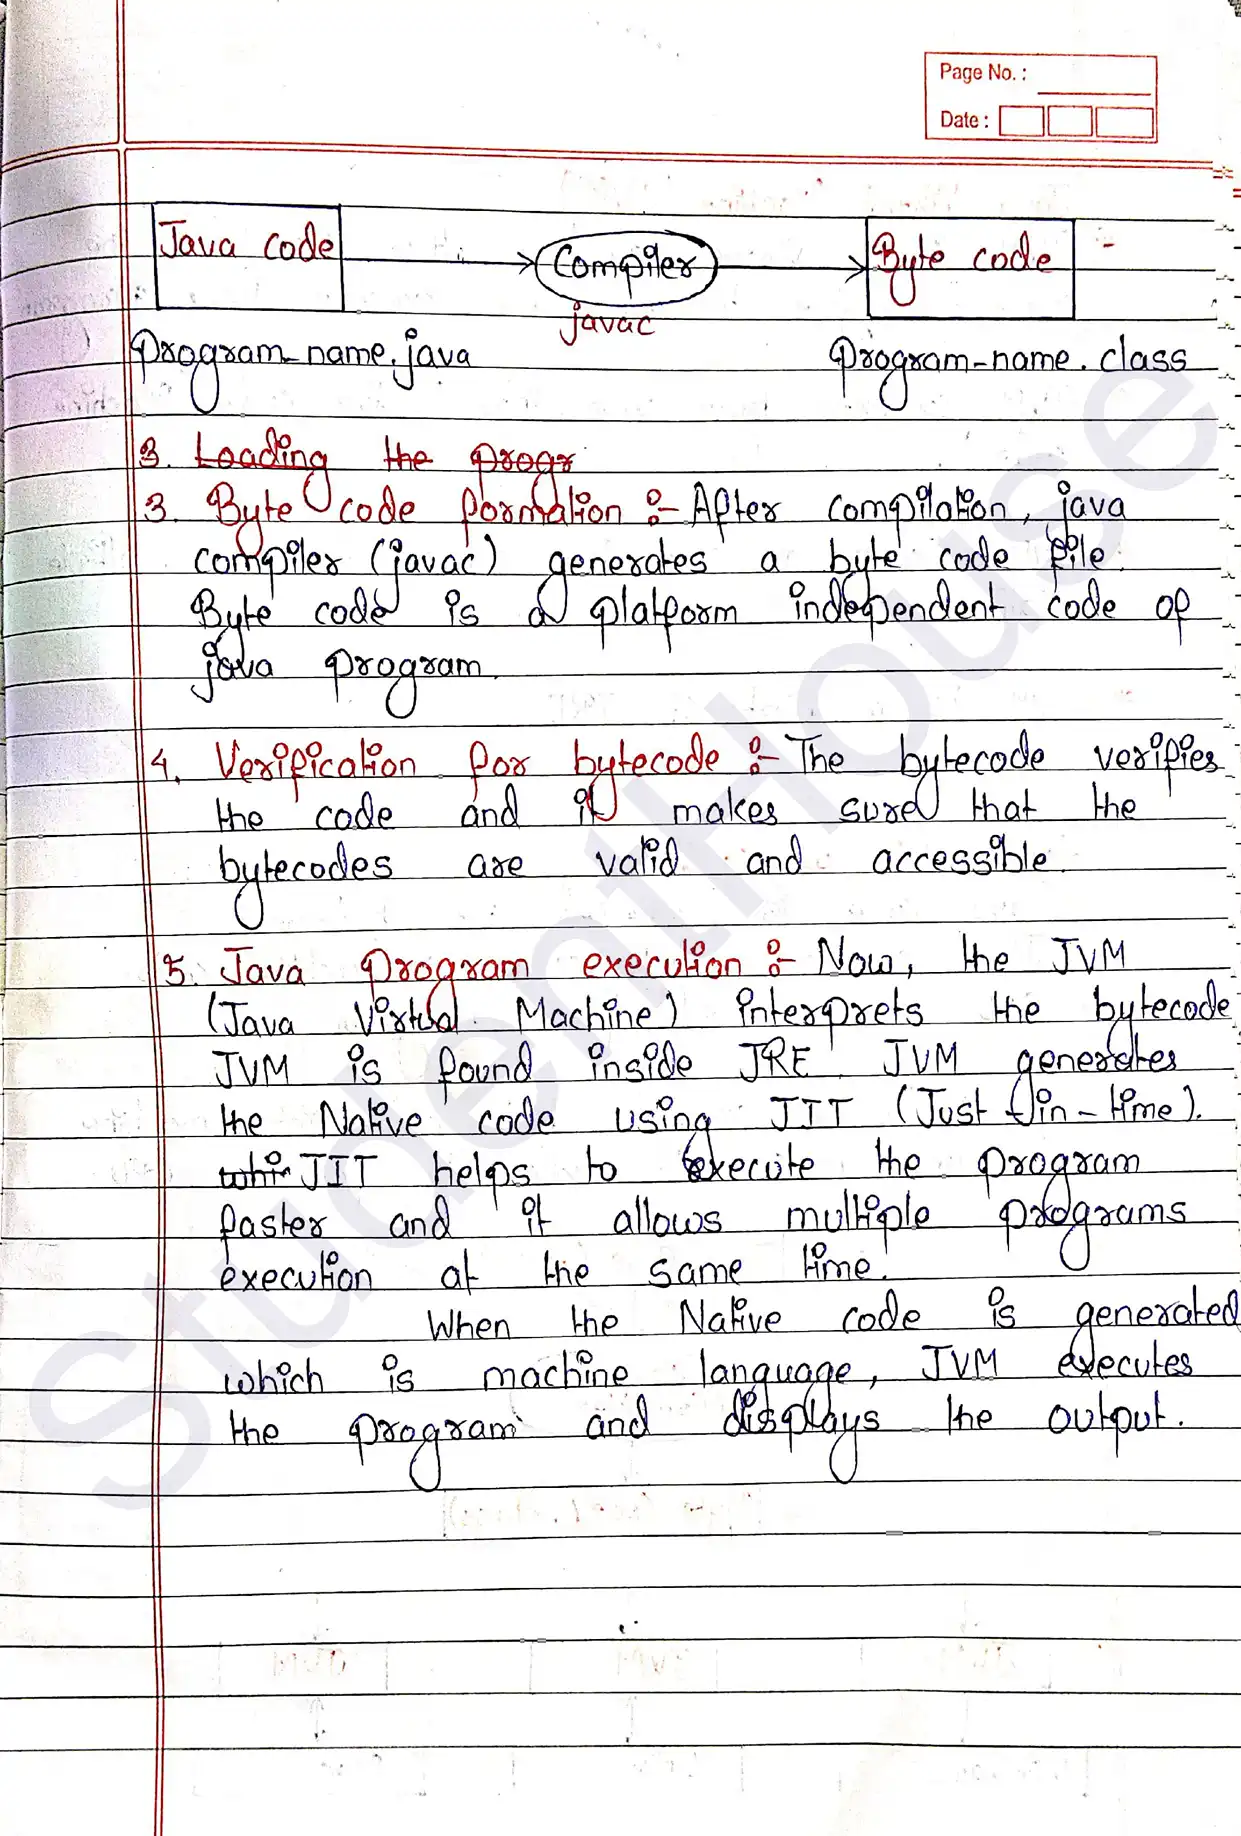 Page No. :
Date :
Java code
Compiler
Byte code
javac
Program_name.java
Program-name.class
3. Loading the progr
3. Byte code formation :- After compilation, java
compiler (javac) generates a byte code file.
Byte code is a platform independent code of
java program.
4. Verification for bytecode :- The bytecode verifies
the code and it makes sure that the
bytecodes are valid and accessible.
5. Java program execution :- Now, the JVM
(Java Virtual Machine) interprets the bytecode
JVM is found inside JRE. JVM generates
the Native code using JIT (Just-in-time).
whi JIT helps to execute the program
faster and it allows multiple programs
execution at the same time.
When the Native code is generated
which is machine language, JVM executes
the program and displays the output.
StudentHouse